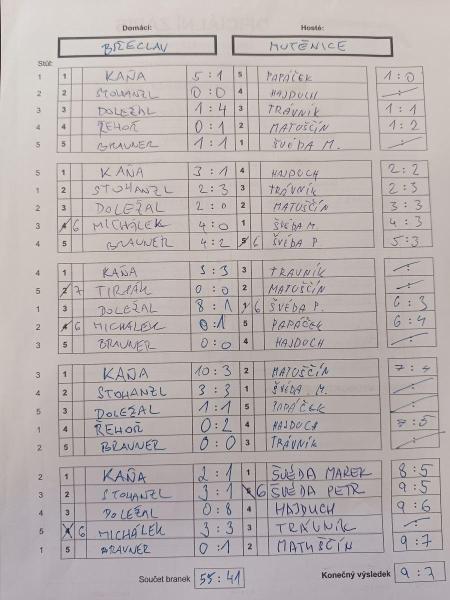 Domácí: Hosté:
BŘECLAV MUTĚNICE
Stůl:
1 1 KAŇA 5:1 5 PAPÁČEK 1:0
2 2 STOHANZL 0:0 4 HAJDUCH -:-
3 3 DOLEŽAL 1:4 3 TRÁVNÍK 1:1
4 4 ŘEHOŘ 0:1 2 MATUŠČÍN 1:2
5 5 BRAUNER 1:1 1 ŠVÉDA M. -:-
5 1 KAŇA 3:1 4 HAJDUCH 2:2
1 2 STOHANZL 2:3 3 TRÁVNÍK 2:3
2 3 DOLEŽAL 2:0 2 MATUŠČÍN 3:3
3 6 MICHÁLEK 4:0 1 ŠVÉDA M. 4:3
4 5 BRAUNER 4:2 6 ŠVÉDA P. 5:3
4 1 KAŇA 3:3 3 TRÁVNÍK -:-
5 7 TIRPÁK 0:0 2 MATUŠČÍN -:-
1 3 DOLEŽAL 8:1 6 ŠVÉDA P. 6:3
2 6 MICHÁLEK 0:1 5 PAPÁČEK 6:4
3 5 BRAUNER 0:0 4 HAJDUCH -:-
3 1 KAŇA 10:3 2 MATUŠČÍN 7:4
4 2 STOHANZL 3:3 1 ŠVÉDA M. -:-
5 3 DOLEŽAL 1:1 5 PAPÁČEK -:-
1 4 ŘEHOŘ 0:2 4 HAJDUCH 7:5
2 5 BRAUNER 0:0 3 TRÁVNÍK -:-
2 1 KAŇA 2:1 1 ŠVÉDA MAREK 8:5
3 2 STOHANZL 3:1 6 ŠVÉDA PETR 9:5
4 3 DOLEŽAL 0:8 4 HAJDUCH 9:6
5 6 MICHÁLEK 3:3 3 TRÁVNÍK -:-
1 5 BRAUNER 0:1 2 MATUŠČÍN 9:7
Součet branek 55:41 Konečný výsledek 9:7